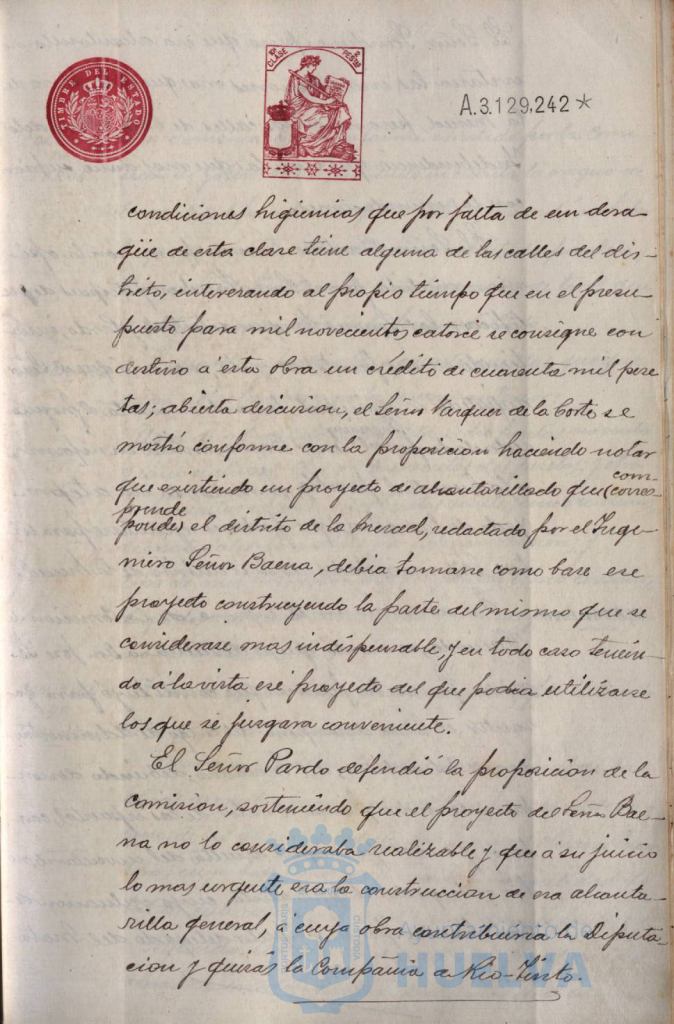 TIMBRE DEL ESTADO
10ª CLASE
2 PESETAS
A.3.129,242*
condiciones higienicas que por falta de un desa-
güe de esta clase tiene alguna de las calles del dis-
trito, interezando al propio tiempo que en el presu-
puesto para mil novecientos catorce se consigne con
destino á esta obra un crédito de cuarenta mil pese
tas; abierta discusion, el Señor Vazquez de la Corte se
mostró conforme con la proposicion haciendo notar
que existiendo un proyecto de alcantarillado que (corres
com-
prende
ponde) el distrito de la Merced, redactado por el Inge-
niero Señor Baena, debia tomarse como base ese
proyecto construyendo la parte del mismo que se
considerase mas indispensable, y en todo caso tenien-
do á la vista ese proyecto del que podia utilizarse
los que se juzgara conveniente.
El Señor Pardo defendió la proposicion de la
comision, sosteniendo que el proyecto del Señor Bae-
na no lo consideraba realizable y que á su juicio
lo mas urgente era la construccion de esa alcanta-
rilla general, á cuya obra contribuiria la Diputa-
cion y quizás la Compañia de Rio-Tinto.
HUELVA